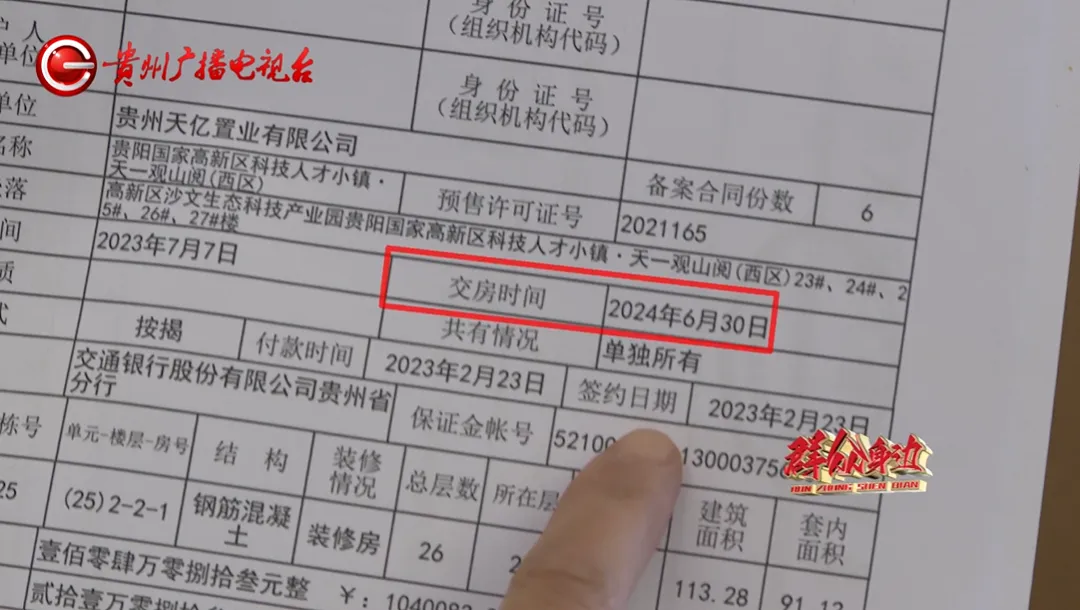 身份证号
(组织机构代码)
户人
单位
贵州广播电视台
身份证号
(组织机构代码)
单位
贵州天亿置业有限公司
名称
贵阳国家高新区科技人才小镇·
天一观山阅(西区)
预售许可证号
2021165
备案合同份数
6
落
高新区沙文生态科技产业园贵阳国家高新区科技人才小镇·天一观山阅(西区)23#、24#、2
5#、26#、27#楼
间
2023年7月7日
交房时间
2024年6月30日
质
共有情况
单独所有
式
按揭
付款时间
2023年2月23日
签约日期
2023年2月23日
交通银行股份有限公司贵州省
分行
保证金帐号
52100
13000375
群众身边
QUN ZHONG SHEN BIAN
栋号
单元-楼层-房号
结构
装修
情况
总层数
所在层
建筑
面积
套内
面积
25
(25)2-2-1
钢筋混凝
土
装修房
26
2
113.28
91.12
壹佰零肆万零捌拾叁元整
￥：1040083
贰拾壹万零捌